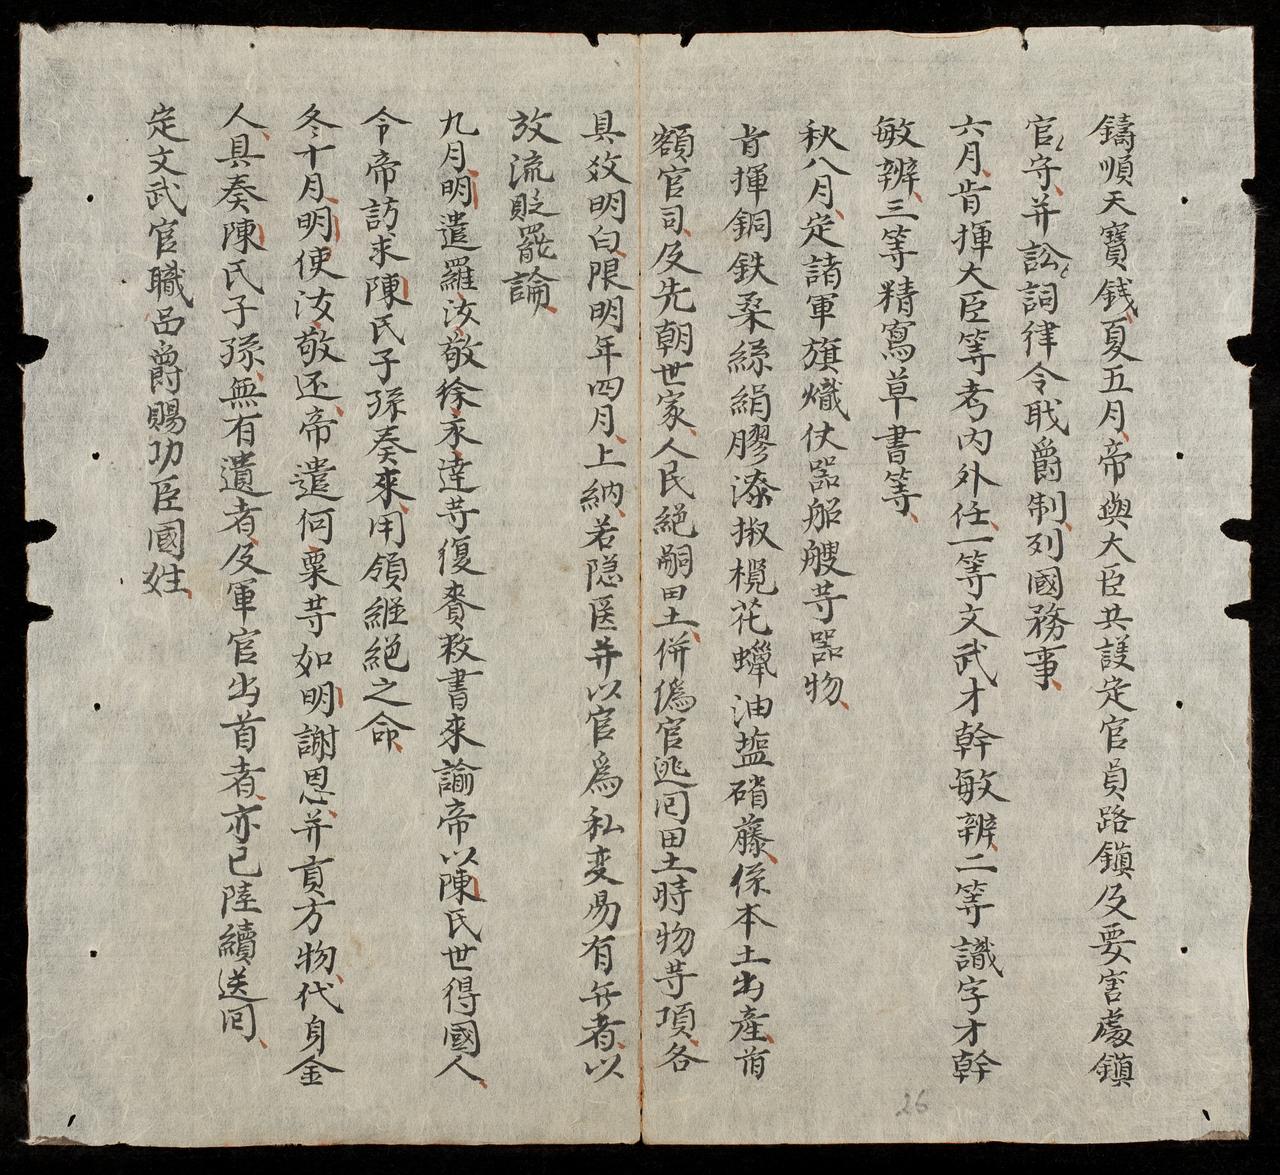 鑄順天寶錢夏五月帝與大臣共議定官員路鎮及要害處鎮
官守并訟詞律令职爵制列國務事
六月肯揮大臣等考内外任一等文武才幹敏辨二等識字才幹
敏辨三等精寫草書等
秋八月定諸軍旗幟仗器船艘等器物
肯揮銅鉄柔絲絹膠漆椒榄花蠟油塩硝藤係本土出產首
額官司及先朝世家人民絕嗣田土併偽官逃囘田土時物等項各
具效明白限明年四月上納若隐匿并以官爲私变易有無者以
放流貶罷論
九月明遣羅汝敬徐永達等復賚敕書來諭帝以陳氏世得國人
令帝訪求陳氏子孫奏來用領継絕之命
冬十月明使汝敬还帝遣何栗等如明謝恩并貢方物代身金
人具奏陳氏子孫無有遺者及軍官出首者亦已陸續送囘
定文武官職品爵賜功臣國姓
26